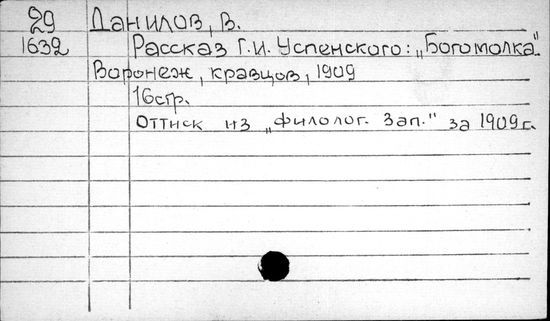 29 Данилов, В.
1632 Рассказ Г.И. Успенского: „Богомолка"
Воронеж, кравцов, 1909
16стр.
Оттиск из „Филолог. Зап." за 1909 г.